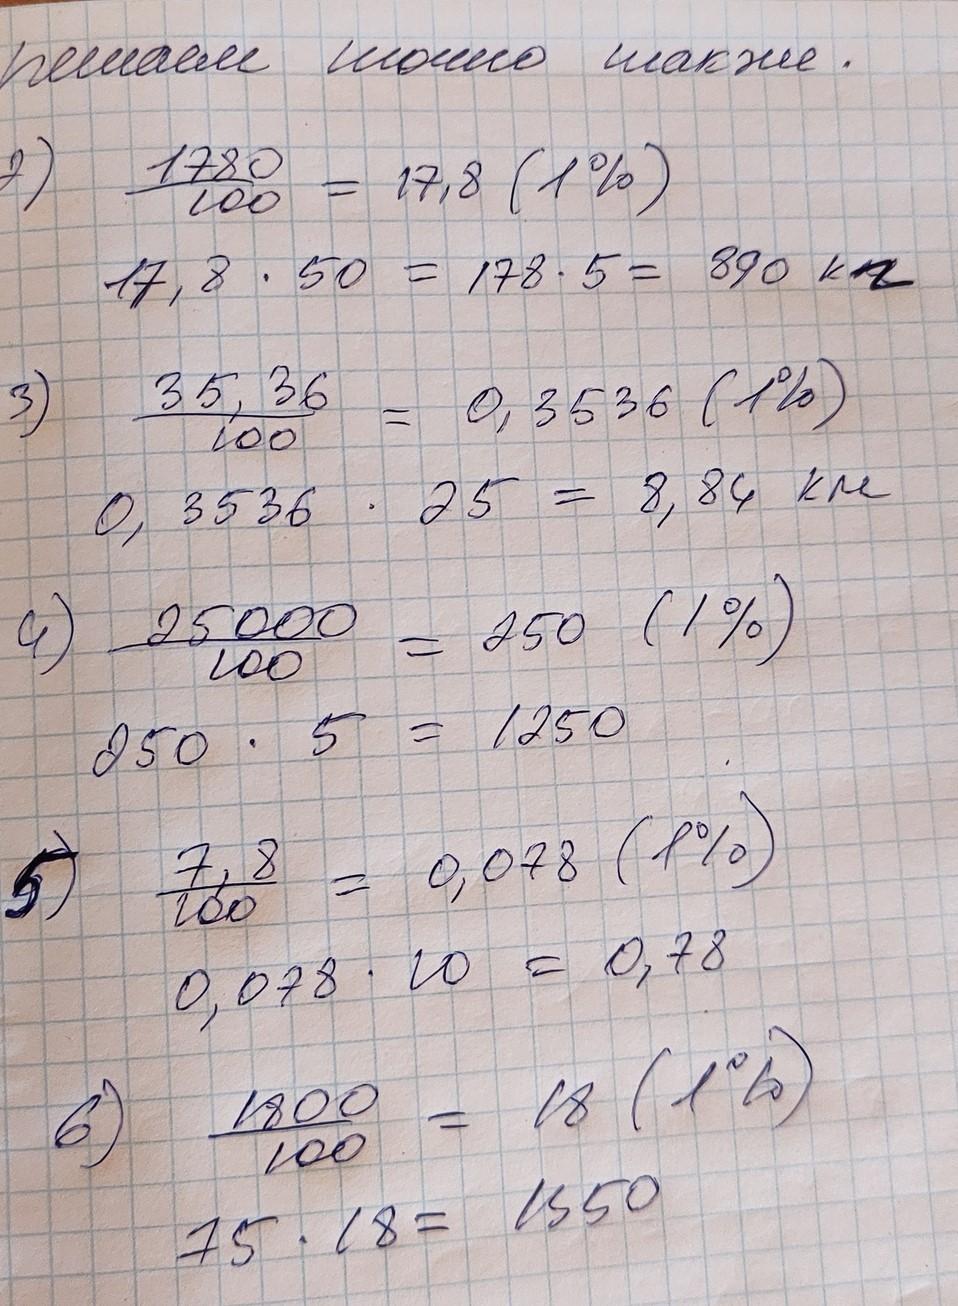 решаем точно также.
2) 1780/100 = 17,8 (1%)
17,8 · 50 = 178 · 5 = 890 кг
3) 35,36/100 = 0,3536 (1%)
0,3536 · 25 = 8,84 км
4) 25000/100 = 250 (1%)
250 · 5 = 1250
5) 7,8/100 = 0,078 (1%)
0,078 · 10 = 0,78
6) 1800/100 = 18 (1%)
75 · 18 = 1350